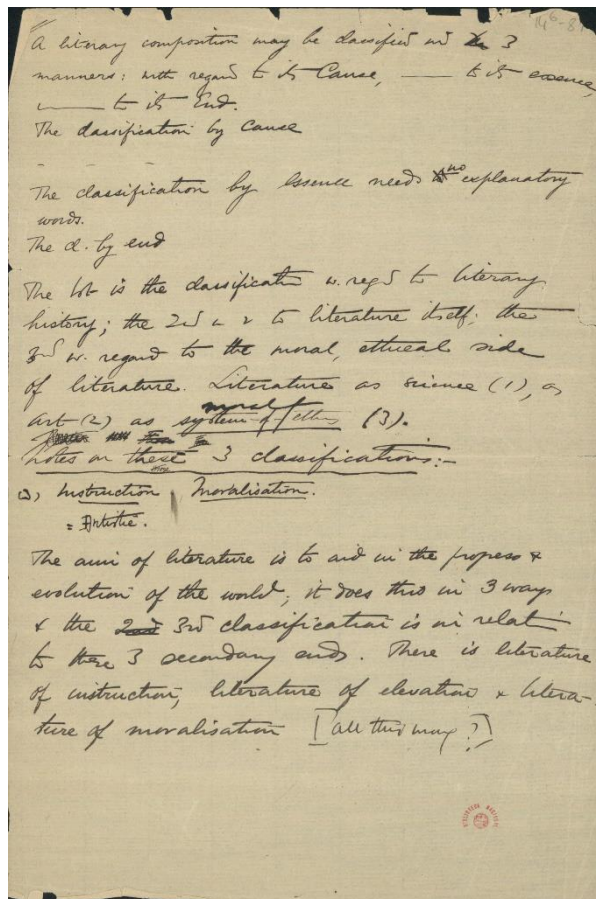 14⁶-87
A literary composition may be classified in 3
manners: with regard to its Cause, —— to its essence,
—— to its End.
The classification by cause
The classification by essence needs no explanatory
words.
The cl. by end
The 1st is the classificatn w. regd to literary
history; the 2nd " " to literature itself; the
3rd w. regard to the moral, ethical side
of literature. Literature as science (1), as
art (2) as moral (3).
notes on these 3 classifications:-
Instruction Moralisation.
= Artistic.
The aim of literature is to aid in the progress &
evolution of the world; it does this in 3 ways
& the 2nd 3rd classification is in relatn
to these 3 secondary ends. There is literature
of instruction, literature of elevation & litera-
ture of moralisation [all this may?]